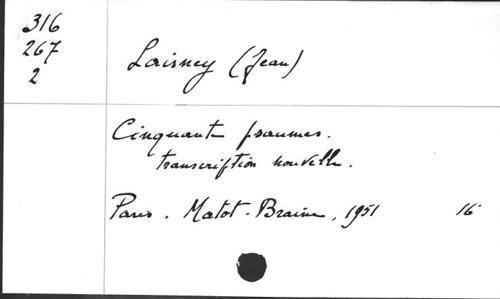 316
267
2
Laisney (Jean)
Cinquante psaumes.
transcription nouvelle.
Paris. Matot-Braine, 1951 16